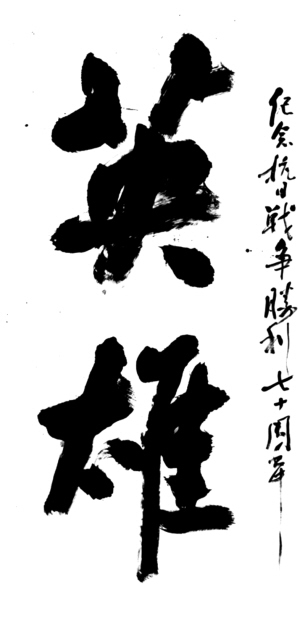 英雄
纪念抗日战争勝利七十周年